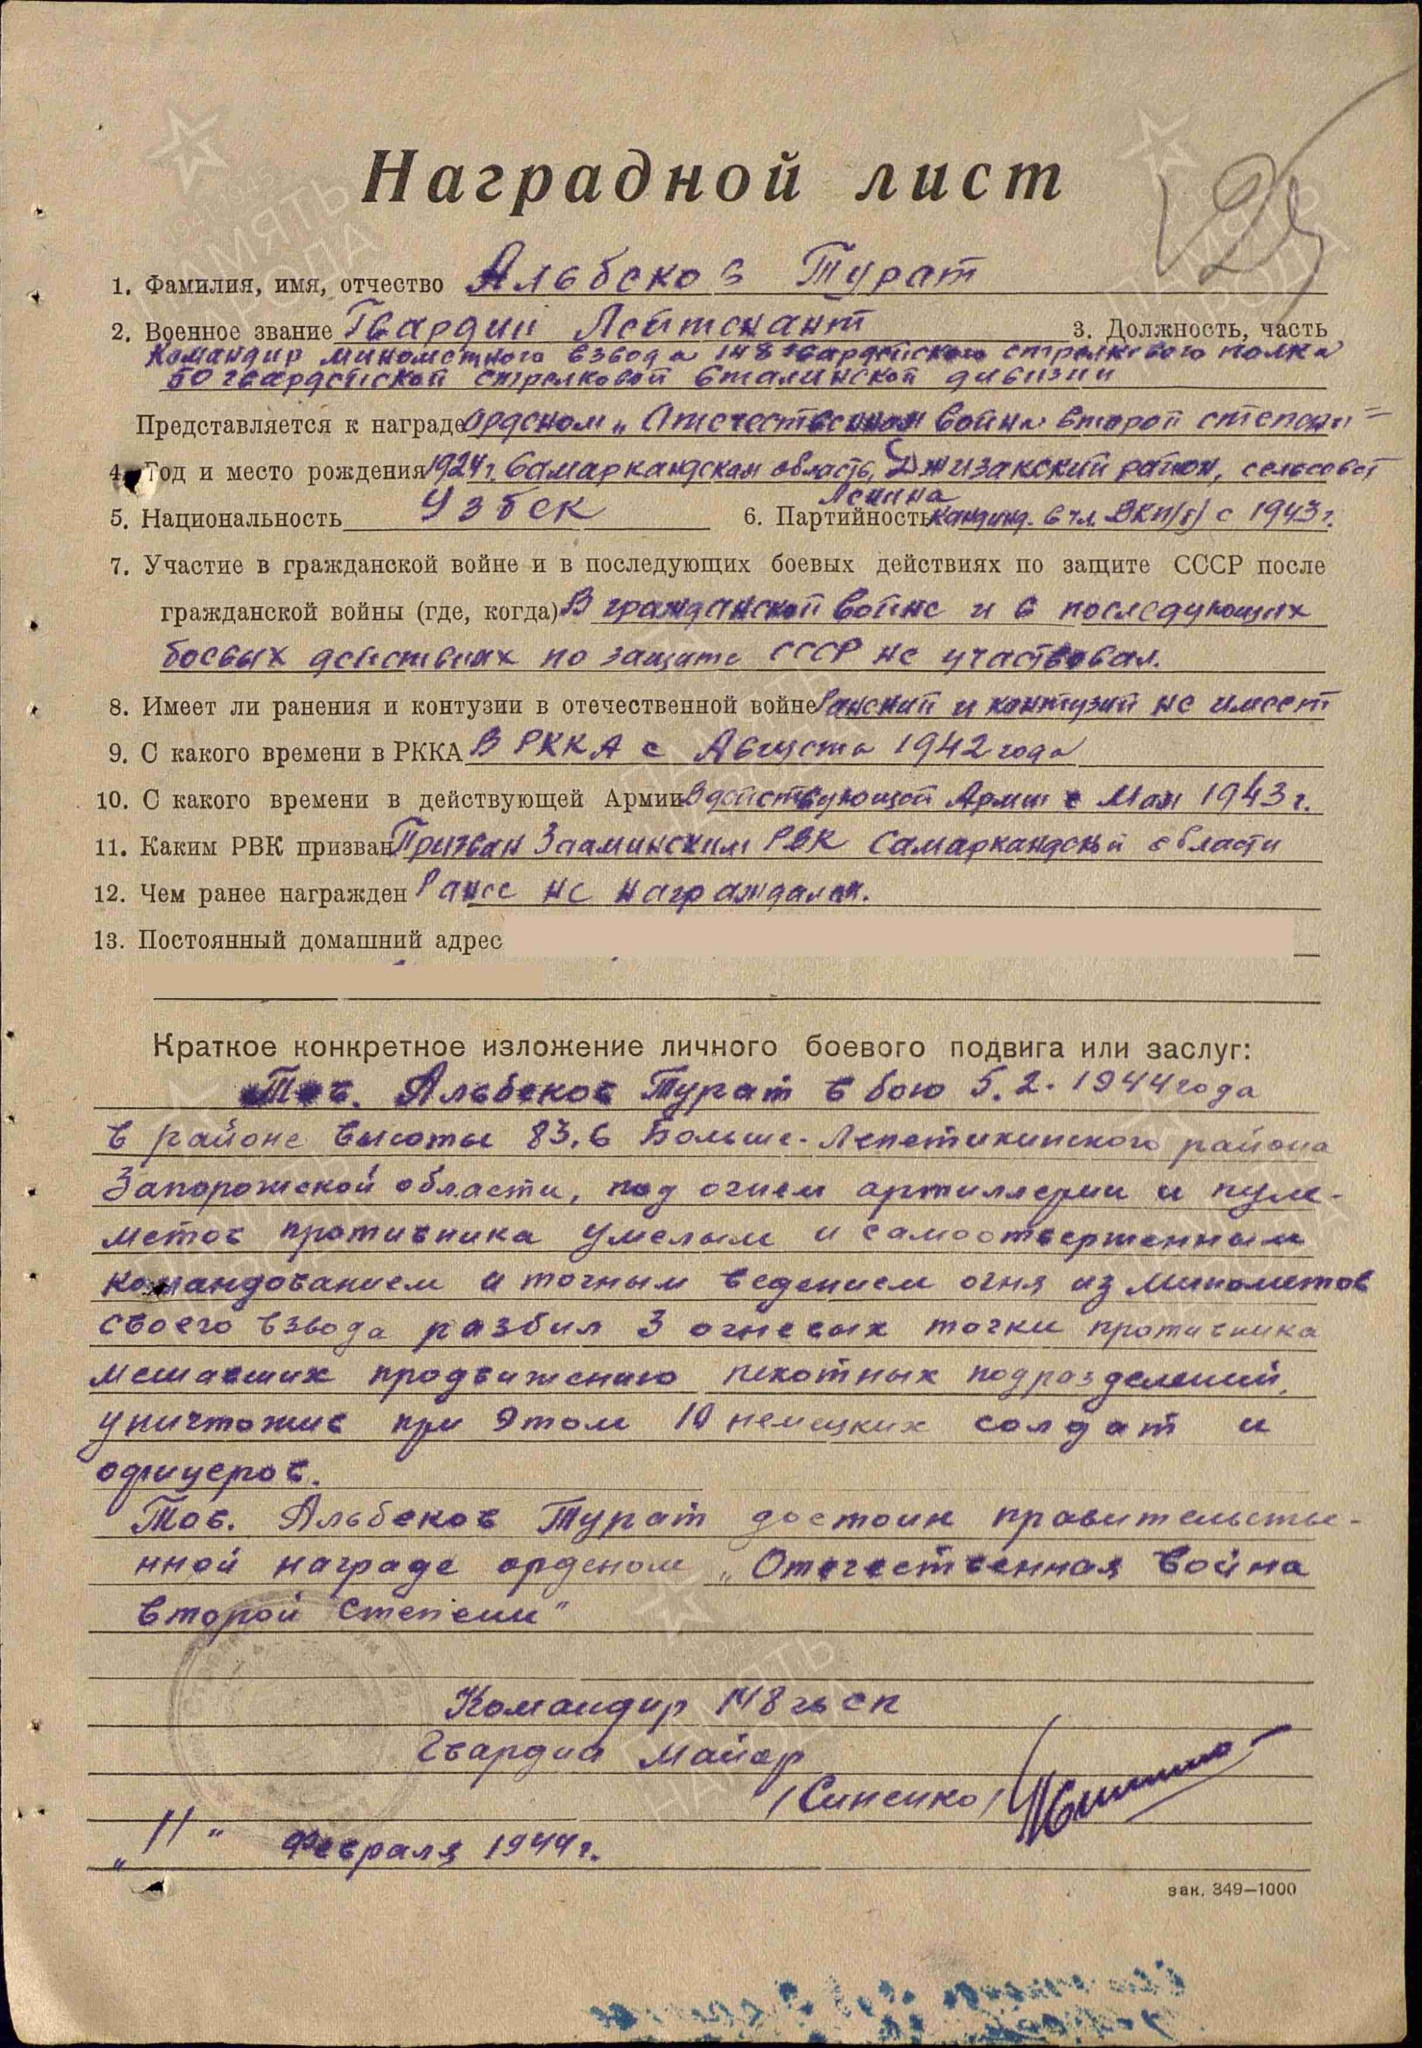 Наградной лист
1. Фамилия, имя, отчество Альбеков Турат
2. Военное звание Гвардии Лейтенант 3. Должность, часть
Командир минометного взвода 148 гвардейского стрелкового полка
50 гвардейской стрелковой Сталинской дивизии
Представляется к награде орденом „Отечественная война второй степени
4. Год и место рождения 1924г. Самаркандская область, Джизакский район, сельсовет
Ленина
5. Национальность Узбек 6. Партийность кандид. в чл. ВКП/б/ с 1943г.
7. Участие в гражданской войне и в последующих боевых действиях по защите СССР после
гражданской войны (где, когда) В гражданской войне и в последующих
боевых действиях по защите СССР не участвовал.
8. Имеет ли ранения и контузии в отечественной войне Ранений и контузий не имеет
9. С какого времени в РККА В РККА с Августа 1942 года
10. С какого времени в действующей Армии В действующей Армии с Мая 1943г.
11. Каким РВК призван Призван Зааминским РВК Самаркандской области
12. Чем ранее награжден Ранее не награждался.
13. Постоянный домашний адрес
Краткое конкретное изложение личного боевого подвига или заслуг:
Тов. Альбеков Турат в бою 5.2.1944 года
в районе высоты 83,6 Больше-Лепетихинского района
Запорожской области, под огнем артиллерии и пуле-
метов противника умелым и самоотверженным
командованием и точным ведением огня из минометов
своего взвода разбил 3 огневых точки противника
мешавших продвижению пехотных подразделений,
уничтожив при этом 10 немецких солдат и
офицеров.
Тов. Альбеков Турат достоин правительстве-
нной награде орденом „Отечественная война
второй степени"
Командир 148 гв сп
Гвардии майор
/Синенко/
„11" Февраля 1944г.
зак. 349—1000